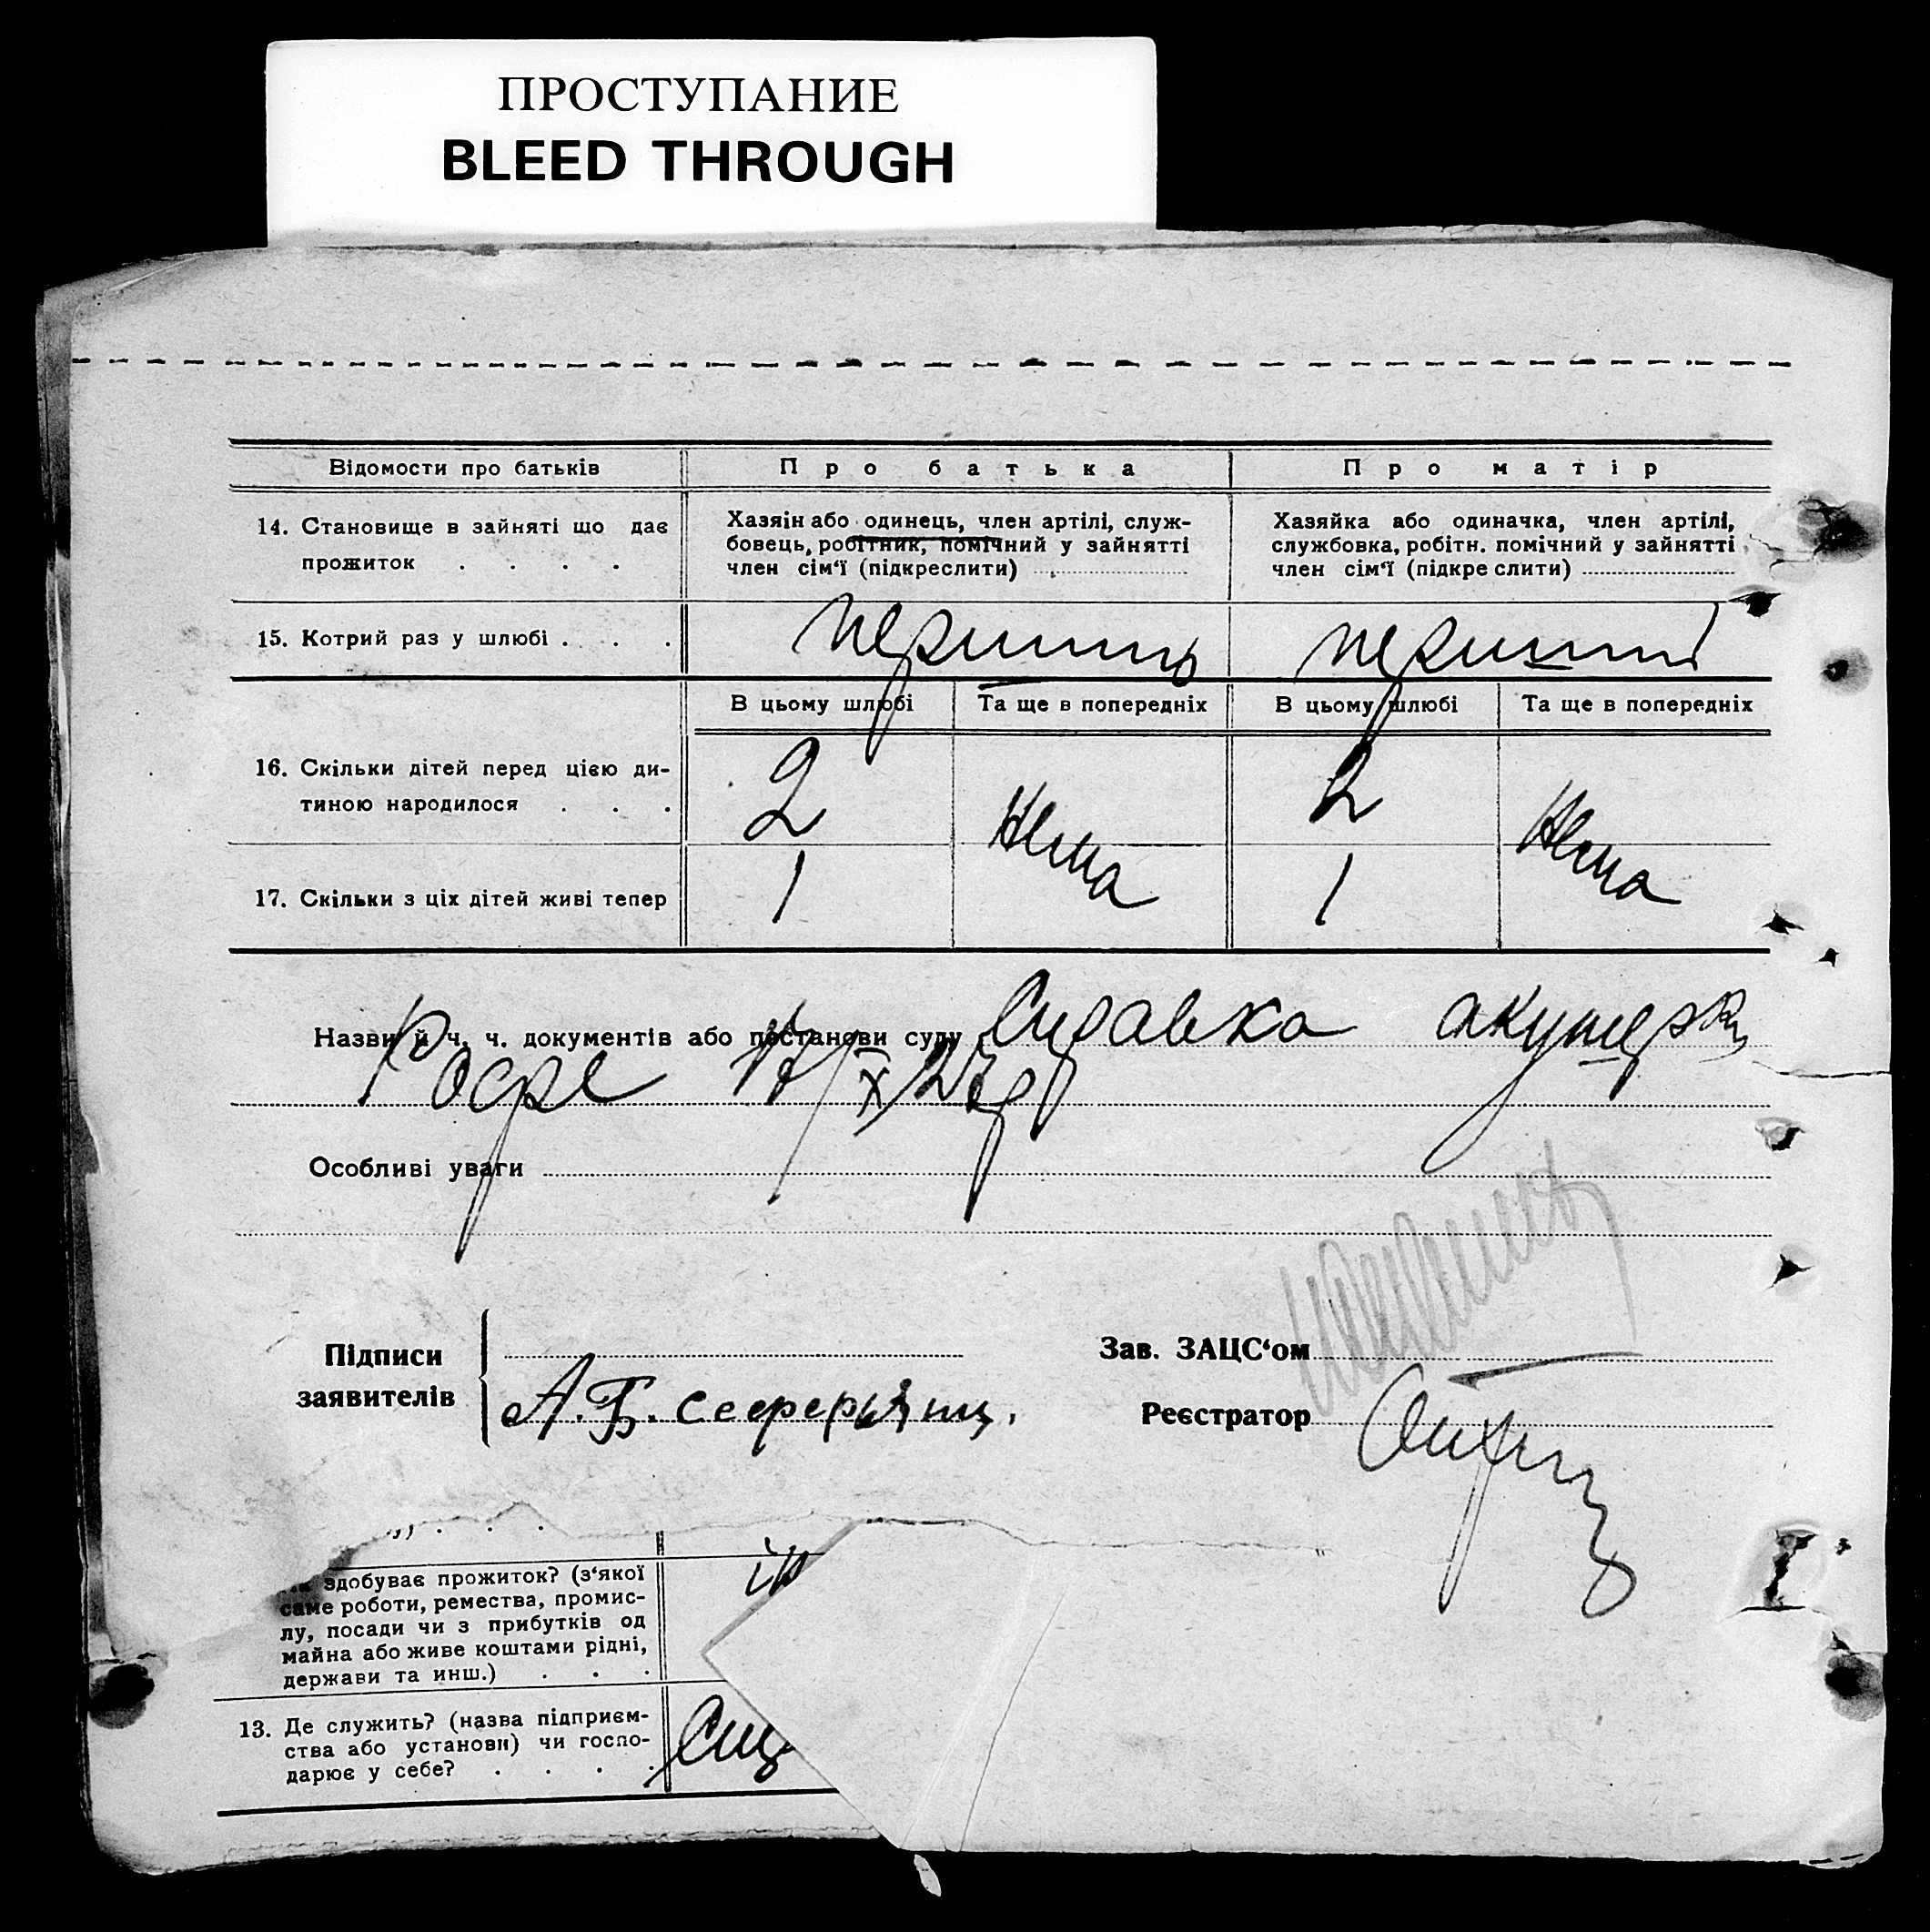 ПРОСТУПАНИЕ
BLEED THROUGH
Відомости про батьків
Про батька
Про матір
14. Становище в зайняті що дає
прожиток . . . .
Хазяін або одинець, член артілі, служ-
бовець, робітник, помічний у зайнятті
член сім‘ї (підкреслити)
Хазяйка або одиначка, член артілі,
службовка, робітн. помічний у зайнятті
член сім‘ї (підкреслити)
15. Котрий раз у шлюбі . . .
першиь
перший
В цьому шлюбі
Та ще в попередніх
В цьому шлюбі
Та ще в попередніх
16. Скільки дітей перед цією ди-
тиною народилося . . .
2
Нема
2
Нема
17. Скільки з ціх дітей живі тепер
1
1
Назви й ч. ч. документів або постанови суду Справка акушерки
27
Особливі уваги
Підписи
заявителів
А. Б.
Зав. ЗАЦС‘ом
Реєстратор
у) . . .
здобуває прожиток? (з‘якої
саме роботи, ремества, промис-
лу, посади чи з прибутків од
майна або живе коштами рідні,
держави та инш.) . . .
13. Де служить? (назва підприєм-
ства або установи) чи госпо-
дарює у себе? . . . .